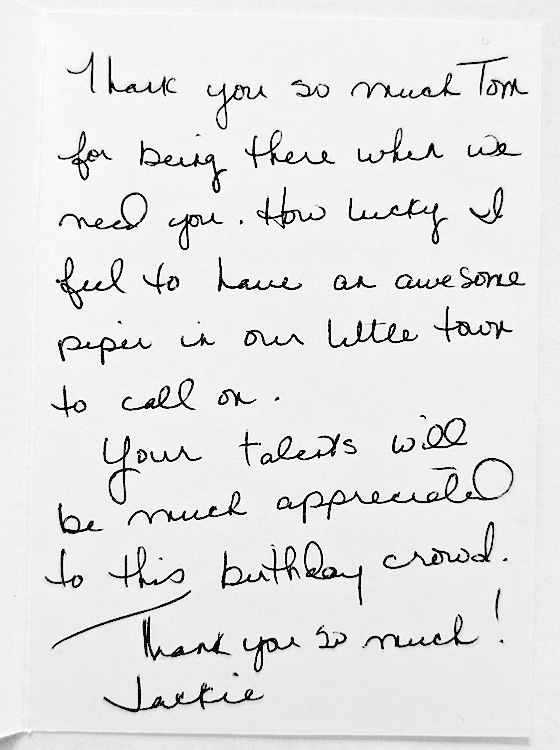 Thank you so much Tom
for being there when we
need you. How lucky I
feel to have an awesome
piper in our little town
to call on.
Your talents will
be much appreciated
to this birthday crowd.
Thank you so much!
Jackie